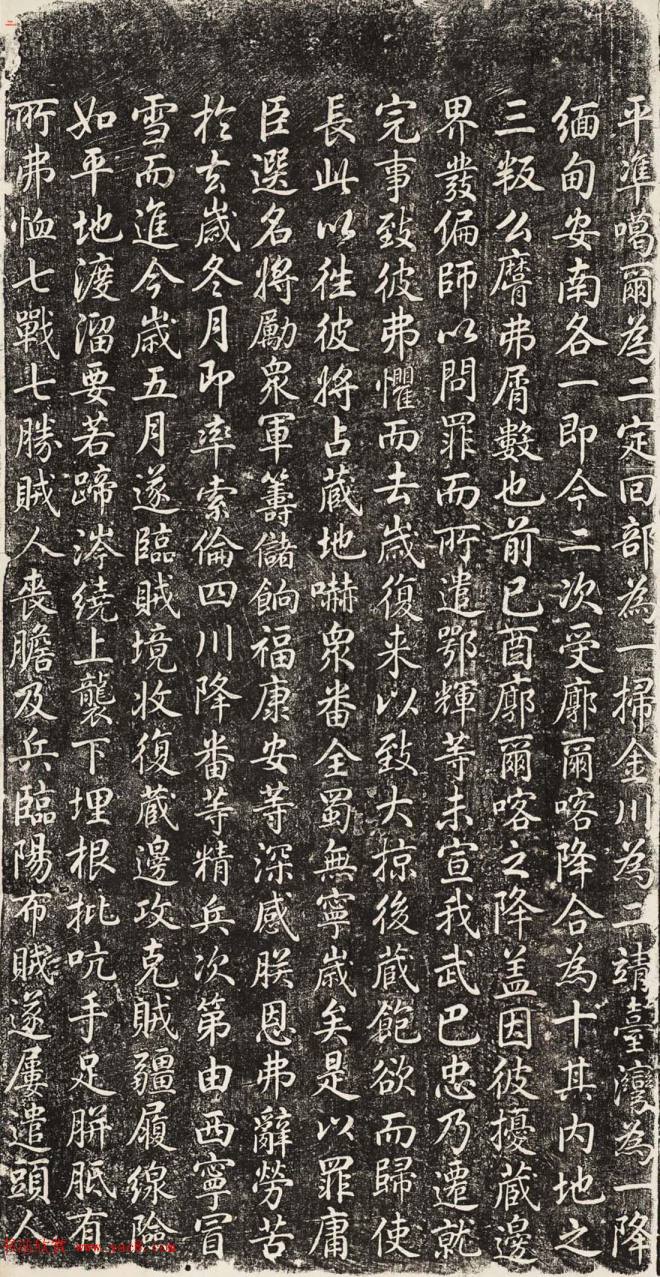 平準噶爾為二定回部為一掃金川為二靖臺灣為一降
緬甸安南各一即今二次受廓爾喀降合為十其内地之
三叛么䴢弗屑數也前已酉廓爾喀之降盖因彼擾藏邊
界發偏師以問罪而所遣鄂輝等未宣我武巴忠乃遷就
完事致彼弗懼而去歲復来以致大掠後藏飽欲而歸使
長此以徃彼將占藏地嚇衆番全蜀無寧歲矣是以罪庸
臣選名將勵衆軍籌儲餉福康安等深感朕恩弗辭勞苦
於去歲冬月即率索倫四川降番等精兵次第由西寧冒
雪而進今歲五月遂臨賊境收復藏邊攻克賊疆履線險
如平地渡溜要若蹄涔繞上襲下埋根批吭手足胼胝有
所弗恤七戰七勝賊人喪膽及兵臨陽布賊遂屢遣頭人
書法欣賞 www.yac8.com
二